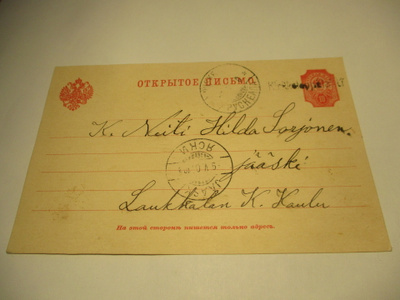 ОТКРЫТОЕ ПИСЬМО.
K. Neiti Hilda Sorjonen.
ЯСКИ
Jääski
Laukkalan K. Koulu
На этой сторонѣ пишется только адресъ.